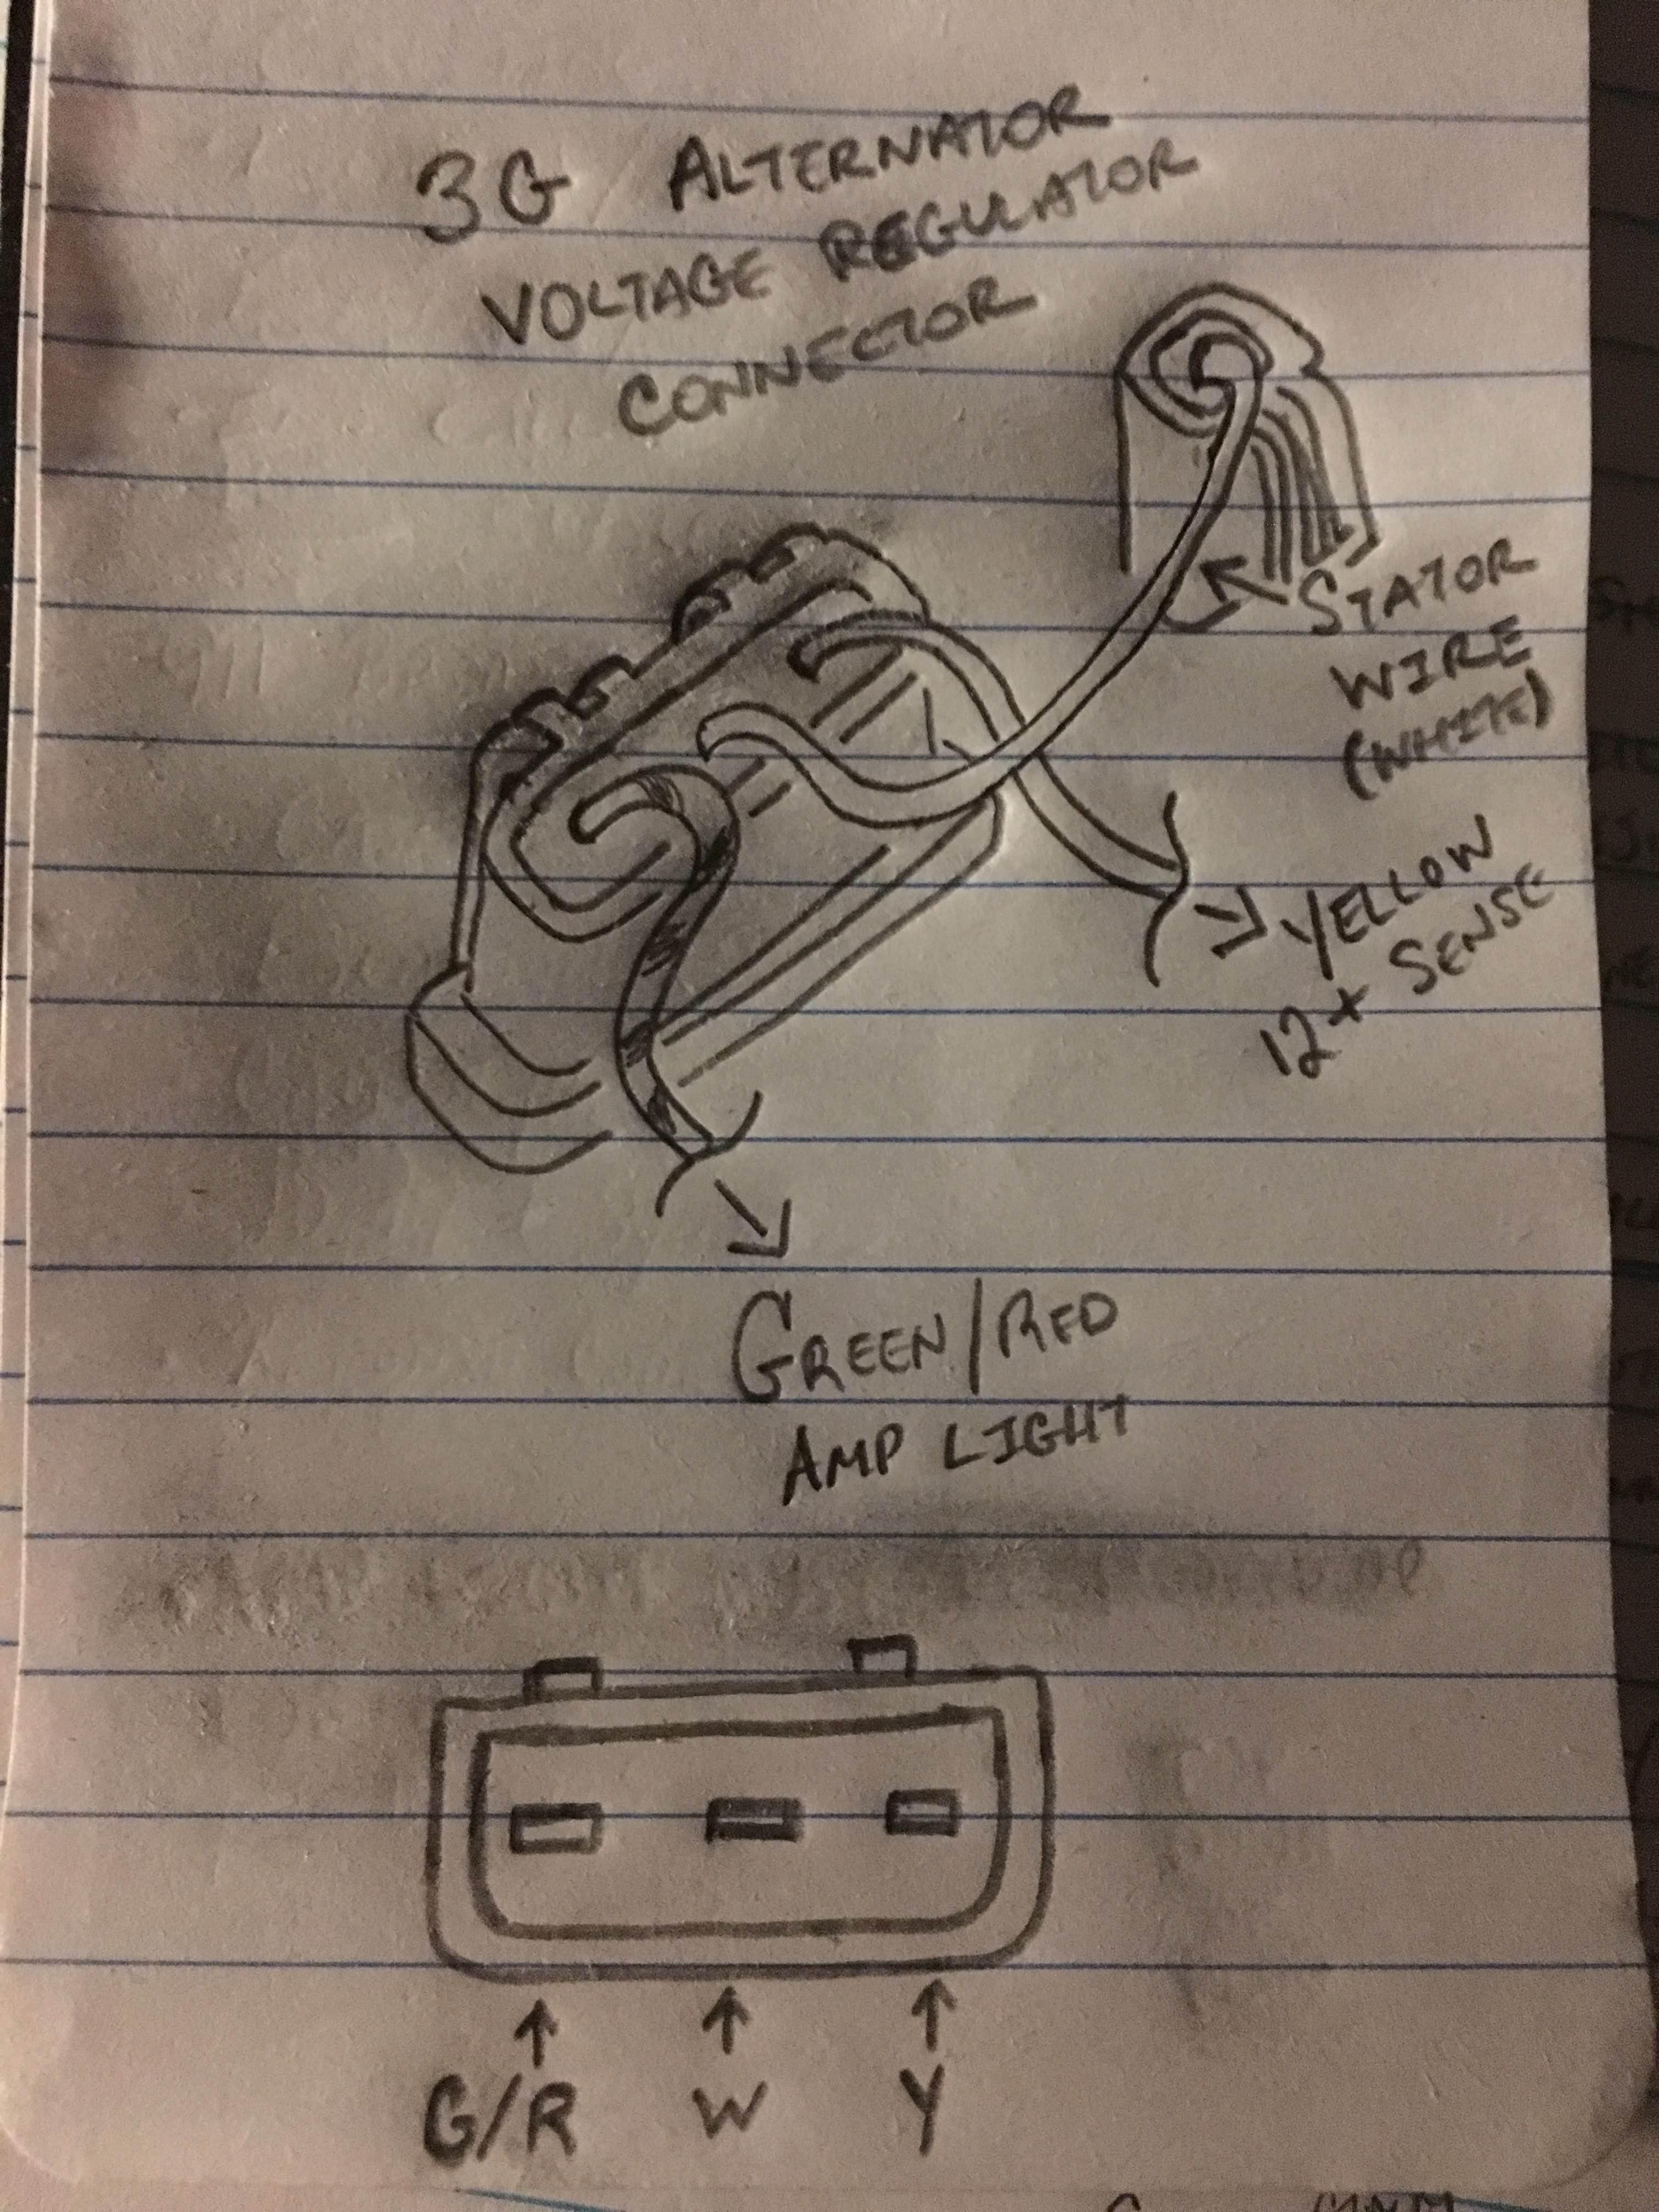 3G ALTERNATOR
VOLTAGE REGULATOR
CONNECTOR
STATOR
WIRE
(WHITE)
YELLOW
12+ SENSE
GREEN/RED
AMP LIGHT
G/R W Y